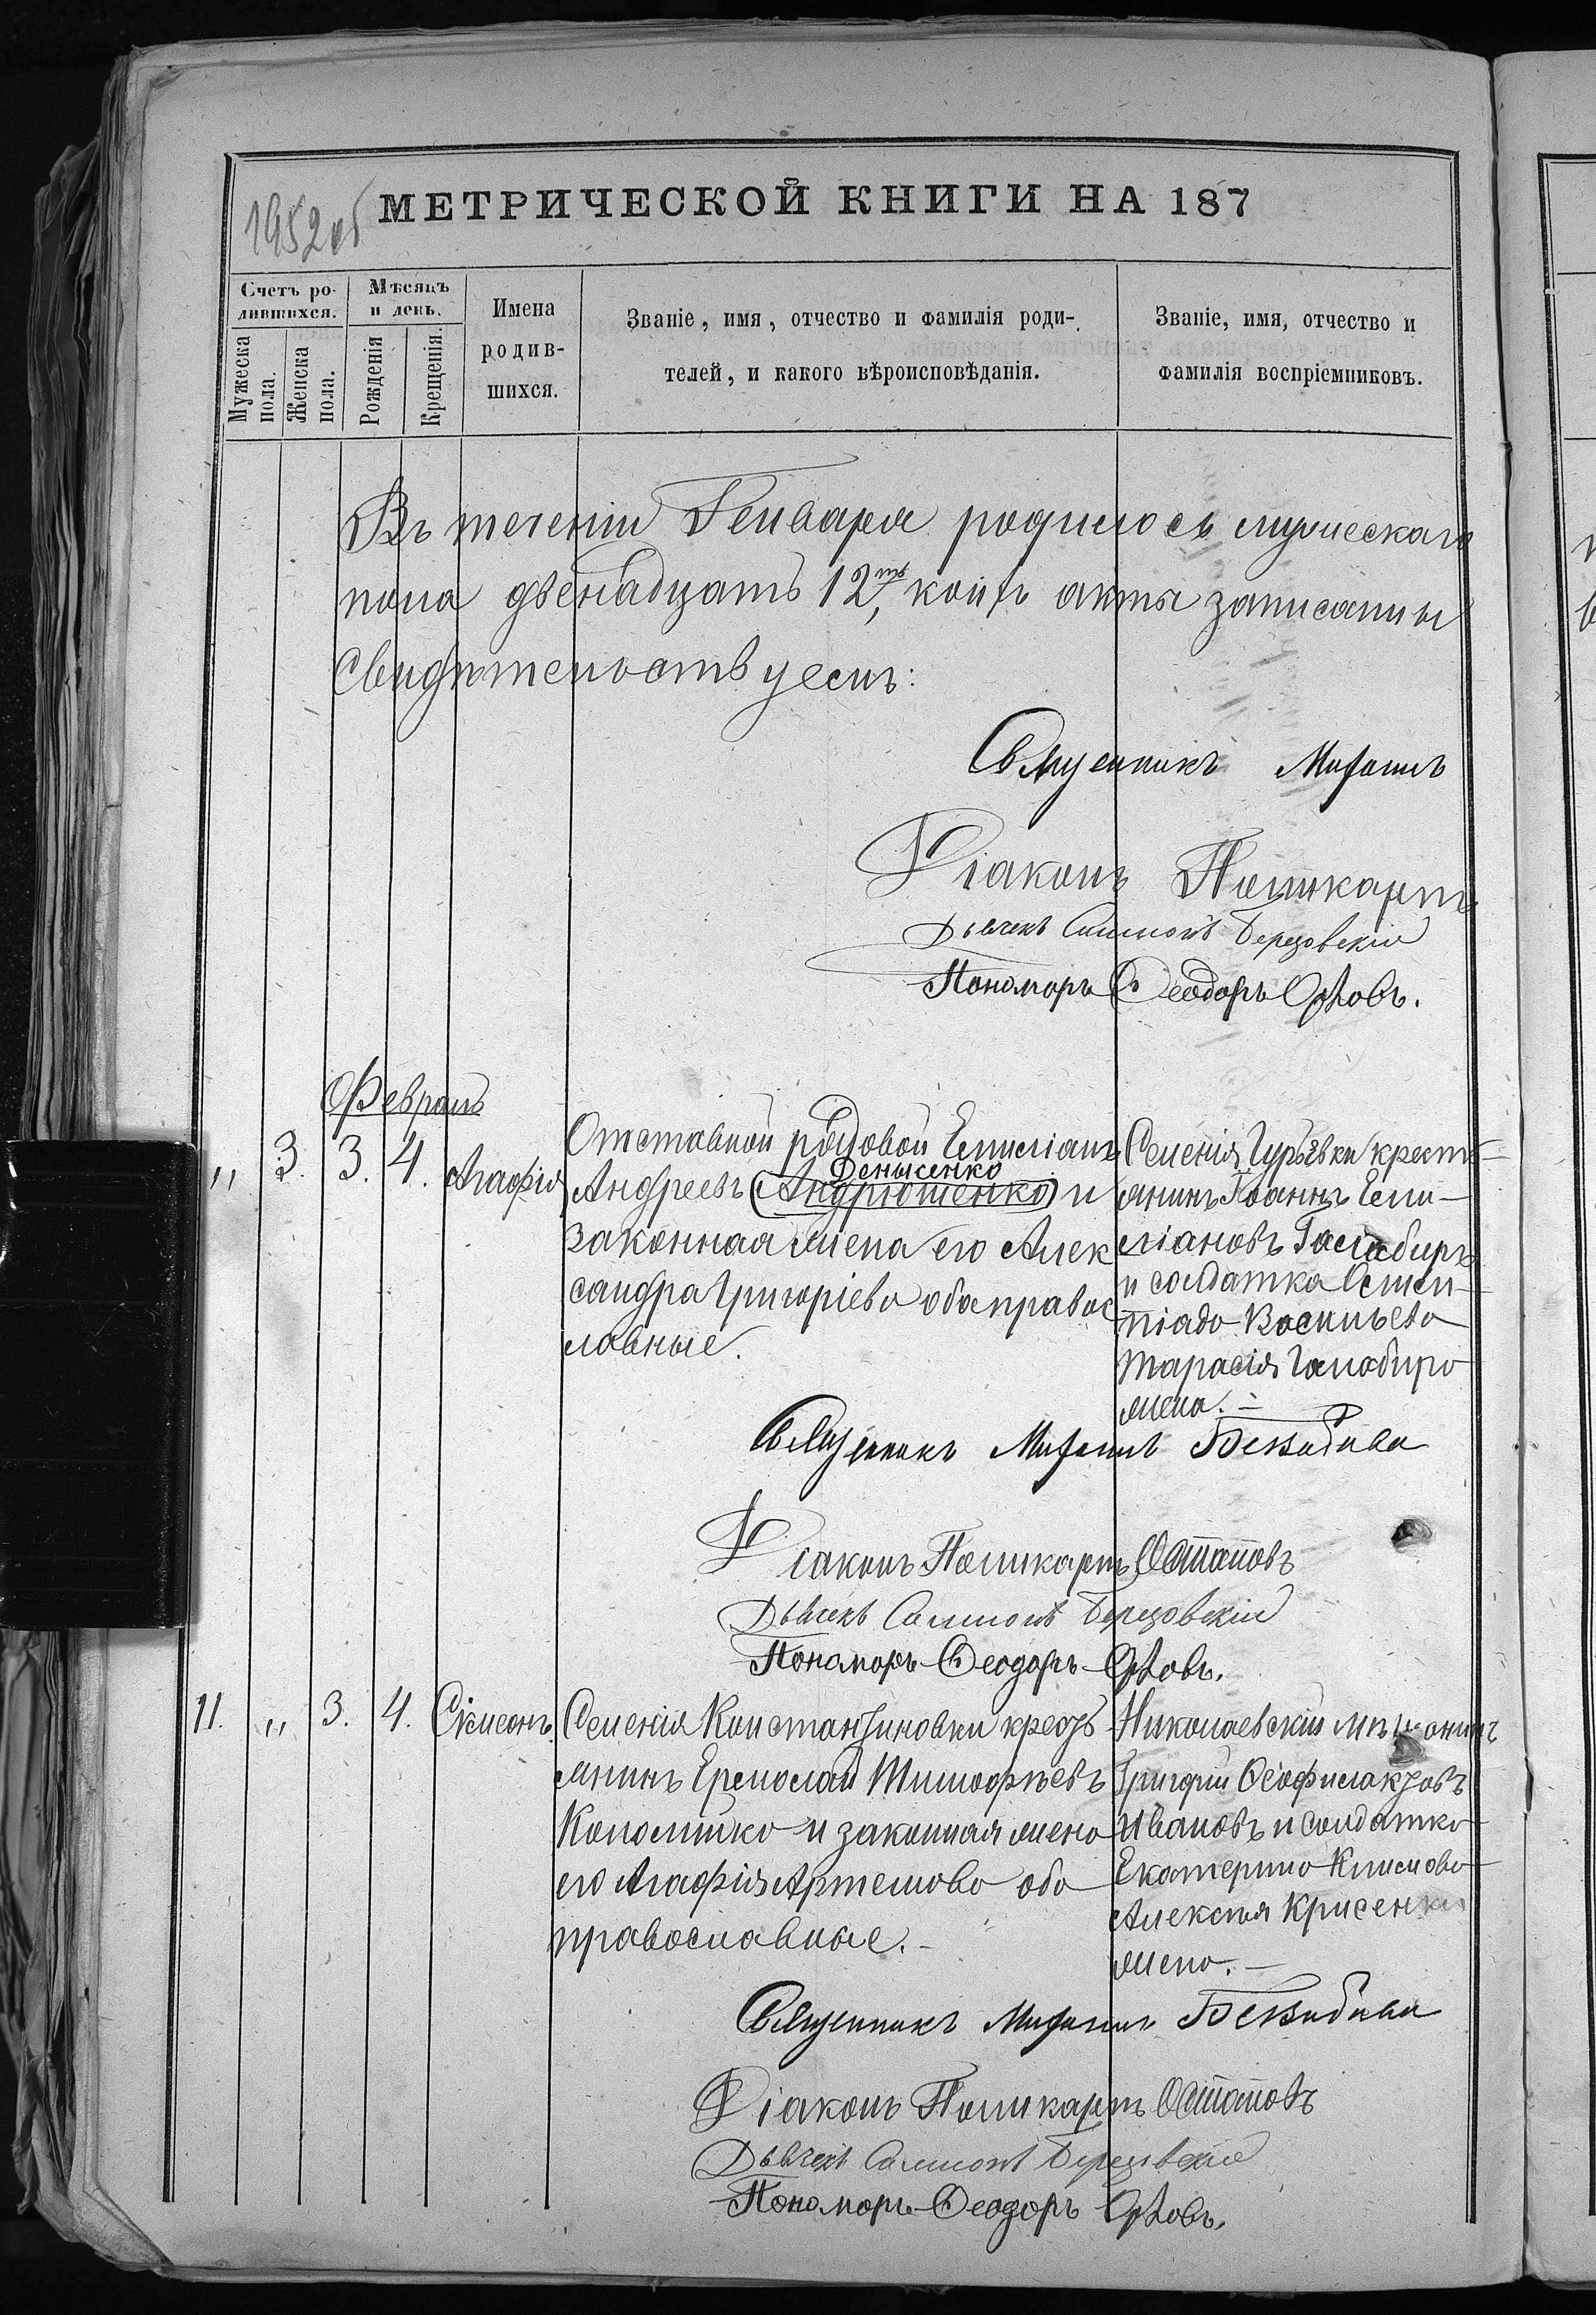 1952 об
МЕТРИЧЕСКОЙ КНИГИ НА 187
Счетъ ро-
дившихся.
Мѣсяцъ
и день.
Мужеска
пола.
Женска
пола.
Рожденія
Крещенія.
Имена
родив-
шихся.
Званіе, имя, отчество и фамилія роди-
телей, и какого вѣроисповѣданія.
Званіе, имя, отчество и
фамилія воспріемниковъ.
Въ теченіи Генваря родилось мужескаго
пола двенадцать 12ть, коихъ акты записаны
Свидѣтельствуемъ:
Священникъ Михаилъ
Діаконъ Поликарпъ
Дьячекъ Березовскій
Пономарь Ѳеодоръ Орловъ.
Февраль
„ 3. 3. 4. Агафія
Отставной рядовой Емиліанъ
Денысенко
Андреевъ (Андрюшенко) и
законная жена его Алек
сандра Григоріева оба правос
лавные.
Селенія Гурьевки кресть-
янинъ Іоаннъ Еми-
ліановъ
и солдатка Олим-
піада Васильева
Тарасія
жена. –
Священникъ Михаилъ
Діаконъ Поликарпъ Остаповъ
Дьячекъ Березовскій
Пономарь Ѳеодоръ Орловъ.
11. „ 3. 4. Сімеонъ
Селенія Константиновки кресть
янинъ Ермолай Тимофѣевъ
и законная жена
его Агафія Артемова оба
православные. –
Николаевскій мѣщанинъ
Григорій Ѳеофилактовъ
Ивановъ и солдатка
Екатерина Климова
Алексѣя Крисенки
жена. –
Священникъ Михаилъ
Діаконъ Поликарпъ Остаповъ
Дьячекъ Березовскій
Пономарь Ѳеодоръ Орловъ.